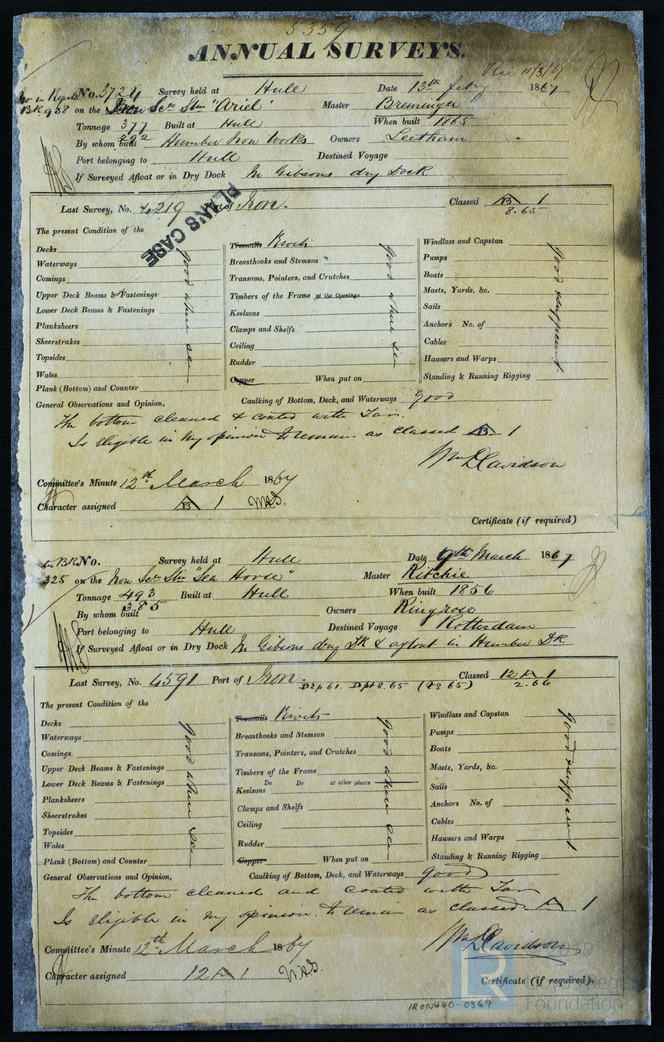 5359
ANNUAL SURVEYS.
Rec 11/3/67
No. 3724 Survey held at Hull Date 13th Feby 1867
on the Iron Scw Stmr "Ariel" Master Breminger
Tonnage 377 Built at Hull When built 1865
292
By whom built Humber Iron Works Owners Leetham
Port belonging to Hull Destined Voyage
If Surveyed Afloat or in Dry Dock In Gibsons dry Dock
PLANS CASE
Last Survey, No. 4219 Iron. Classed A 1
8.65
The present Condition of the
Decks
Waterways
Comings
Upper Deck Beams & Fastenings
Lower Deck Beams & Fastenings
Planksheers
Sheerstrakes
Topsides
Wales
Plank (Bottom) and Counter
good where seen
Treenails Rivets
Breasthooks and Stemson
Transoms, Pointers, and Crutches
Timbers of the Frame at the Openings
Keelsons
Clamps and Shelfs
Ceiling
Rudder
Copper When put on
good where seen
Windlass and Capstan
Pumps
Boats
Masts, Yards, &c.
Sails
Anchors No. of
Cables
Hawsers and Warps
Standing & Running Rigging
good & sufficient
General Observations and Opinion, Caulking of Bottom, Deck, and Waterways good
The bottom cleaned & coated with Tar.
Is eligible in my opinion to remain as classed A 1
Wm Davidson
Committee's Minute 12th March 1867
Character assigned A 1
Certificate (if required)
No. Survey held at Hull Date 9th March 1867
325 on the Iron Scw Stmr "Sea Horse" Master Ritchie
Tonnage 493 Built at Hull When built 1856
385
By whom built Owners Ringrose
Port belonging to Hull Destined Voyage Rotterdam
If Surveyed Afloat or in Dry Dock In Gibsons dry Dk & afloat in Humber Dk
Last Survey, No. 4591 Port of Iron. Classed 12 A 1
2.66
The present Condition of the
Decks
Waterways
Comings
Upper Deck Beams & Fastenings
Lower Deck Beams & Fastenings
Planksheers
Sheerstrakes
Topsides
Wales
Plank (Bottom) and Counter
good where seen
Treenails Rivets
Breasthooks and Stemson
Transoms, Pointers, and Crutches
Timbers of the Frame
Do Do at other places
Keelsons
Clamps and Shelfs
Ceiling
Rudder
Copper When put on
good where seen
Windlass and Capstan
Pumps
Boats
Masts, Yards, &c.
Sails
Anchors No. of
Cables
Hawsers and Warps
Standing & Running Rigging
good & sufficient
General Observations and Opinion, Caulking of Bottom, Deck, and Waterways good
The bottom cleaned and coated with Tar
Is eligible in my opinion to remain as classed A 1
Wm Davidson
Committee's Minute 12th March 1867
Character assigned 12 A 1
Certificate (if required).
IRON440-0369
Foundation